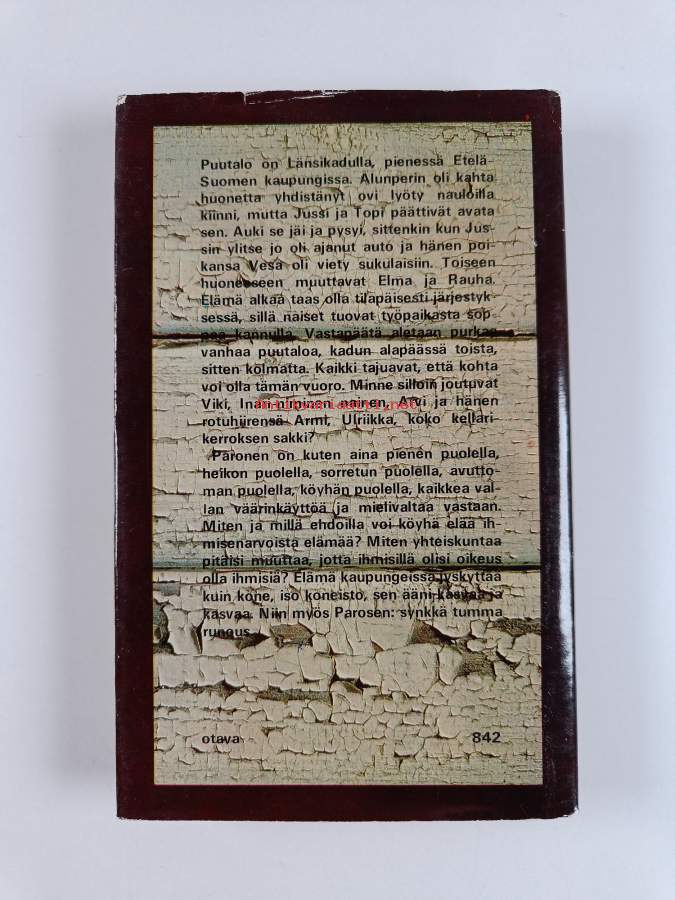 Puutalo on Länsikadulla, pienessä Etelä-
Suomen kaupungissa. Alunperin oli kahta
huonetta yhdistänyt ovi lyöty nauloilla
kiinni, mutta Jussi ja Topi päättivät avata
sen. Auki se jäi ja pysyi, sittenkin kun Jus-
sin ylitse jo oli ajanut auto ja hänen poi-
kansa Vesa oli viety sukulaisiin. Toiseen
huoneeseen muuttavat Elma ja Rauha.
Elämä alkaa taas olla tilapäisesti järjestyk-
sessä, sillä naiset tuovat työpaikasta sop-
paa kannulla. Vastapäätä aletaan purkaa
vanhaa puutaloa, kadun alapäässä toista,
sitten kolmatta. Kaikki tajuavat, että kohta
voi olla tämän vuoro. Minne silloin joutuvat
Viki, Inari nainen, Arvi ja hänen
rotuhiirensä Armi, Ulriikka, koko kellari-
kerroksen sakki?
Paronen on kuten aina pienen puolella,
heikon puolella, sorretun puolella, avutto-
man puolella, köyhän puolella, kaikkea val-
lan väärinkäyttöä ja mielivaltaa vastaan.
Miten ja millä ehdoilla voi köyhä elää ih-
misenarvoista elämää? Miten yhteiskuntaa
pitäisi muuttaa, jotta ihmisillä olisi oikeus
olla ihmisiä? Elämä kaupungeissa jyskyttää
kuin kone, iso koneisto, sen ääni kasvaa ja
kasvaa. Niin myös Parosen: synkkä tumma
runous.
otava 842